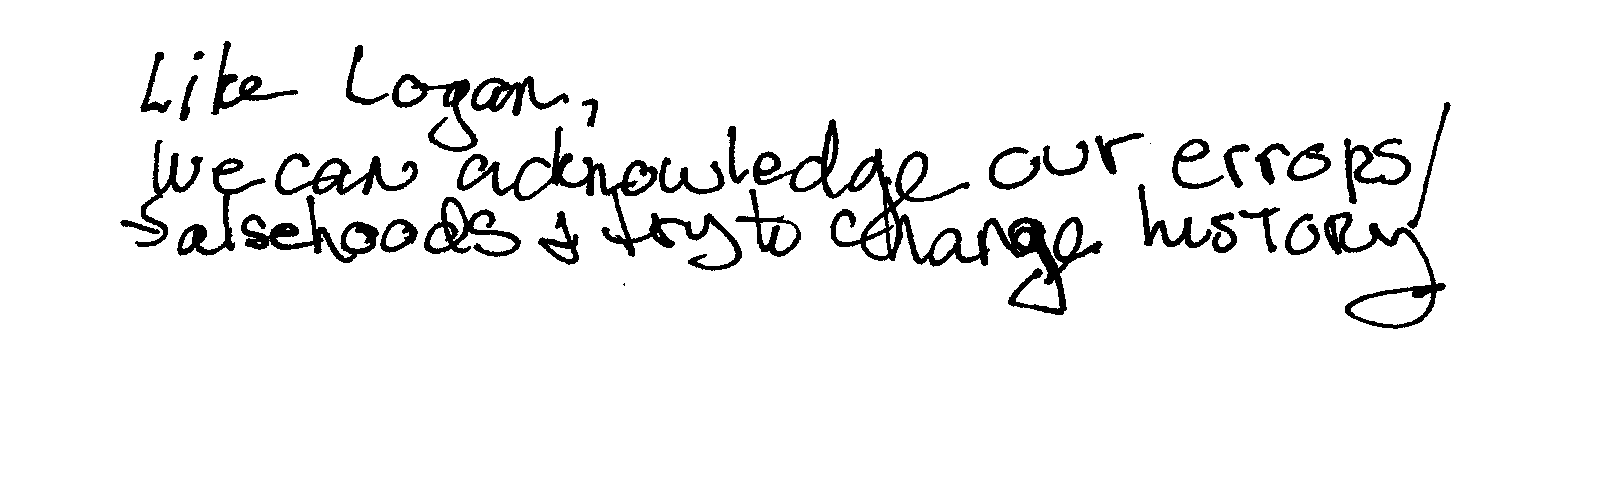 Like Logan,
we can acknowledge our errors/
falsehoods & try to change history